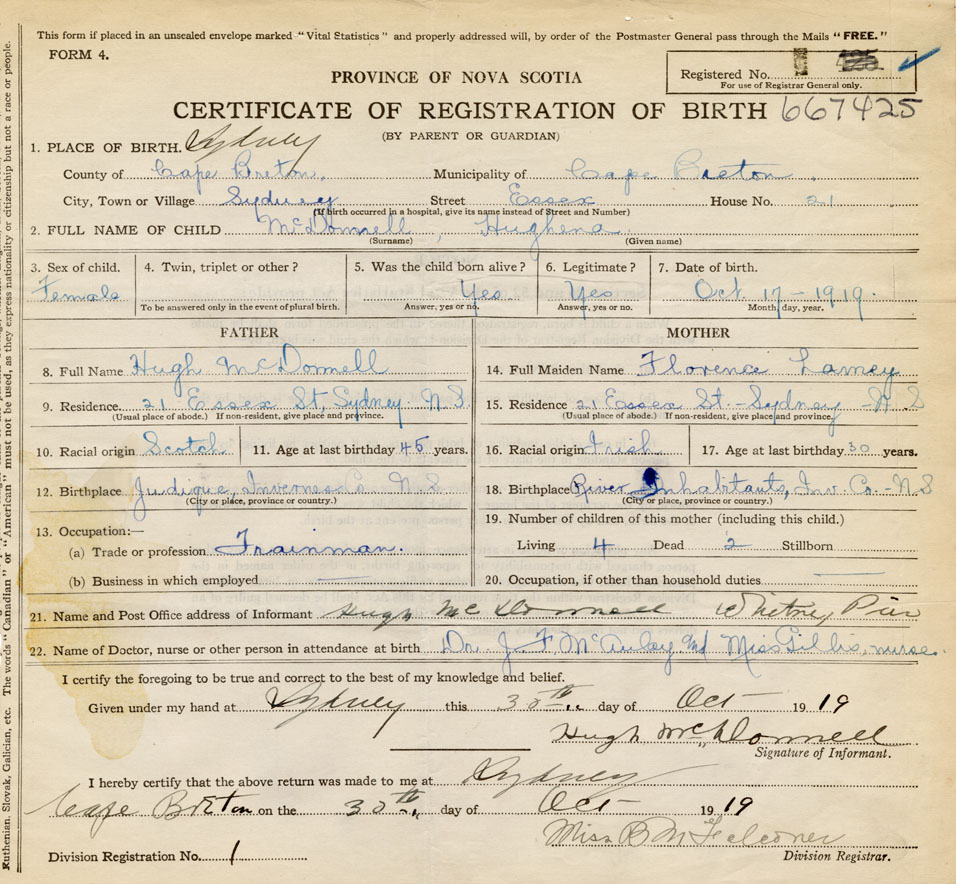 This form if placed in an unsealed envelope marked "Vital Statistics" and properly addressed will, by order of the Postmaster General pass through the Mails "FREE."
FORM 4.
Registered No.
For use of Registrar General only.
PROVINCE OF NOVA SCOTIA
CERTIFICATE OF REGISTRATION OF BIRTH 667425
(BY PARENT OR GUARDIAN)
1. PLACE OF BIRTH. Sydney
County of Cape Breton. Municipality of Cape Breton.
City, Town or Village Sydney Street Essex House No. 21
(If birth occurred in a hospital, give its name instead of Street and Number)
2. FULL NAME OF CHILD McDonnell, Hughena
(Surname) (Given name)
3. Sex of child. 4. Twin, triplet or other? 5. Was the child born alive? 6. Legitimate? 7. Date of birth.
Female Yes Yes Oct 17-1919.
To be answered only in the event of plural birth. Answer, yes or no. Answer, yes or no. Month, day, year.
FATHER MOTHER
8. Full Name Hugh McDonnell 14. Full Maiden Name Florence Lamey
9. Residence. 21 Essex St, Sydney N.S. 15. Residence 21 Essex St-Sydney N S
(Usual place of abode.) If non-resident, give place and province. (Usual place of abode.) If non-resident, give place and province.
10. Racial origin Scotch 11. Age at last birthday 45 years. 16. Racial origin Irish 17. Age at last birthday 30 years.
12. Birthplace Judique, Inverness Co N.S 18. Birthplace River Inhabitants, Inv. Co. N S
(City or place, province or country.) (City or place, province or country.)
13. Occupation:— 19. Number of children of this mother (including this child.)
(a) Trade or profession Trainman. Living 4 Dead 2 Stillborn
(b) Business in which employed — 20. Occupation, if other than household duties —
21. Name and Post Office address of Informant Hugh McDonnell Whitney Pier
22. Name of Doctor, nurse or other person in attendance at birth Dr. J. F. McAulay and Miss Gillis, nurse.
I certify the foregoing to be true and correct to the best of my knowledge and belief.
Given under my hand at Sydney this 30th day of Oct 1919
Hugh McDonnell
Signature of Informant.
I hereby certify that the above return was made to me at Sydney
Cape Breton on the 30th day of Oct 1919
Miss B M Falconer
Division Registration No. 1 Division Registrar.
Ruthenian, Slovak, Galician, etc. The words "Canadian" or "American" must not be used, as they express nationality or citizenship but not a race or people.